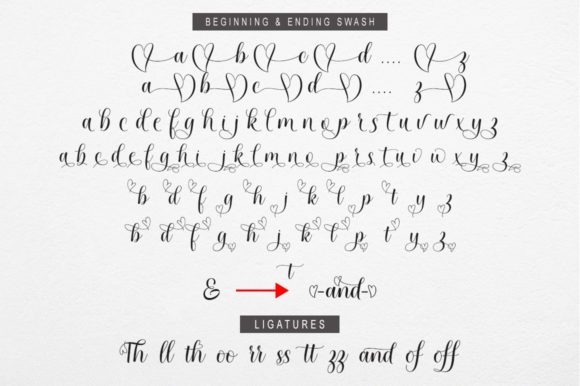 BEGINNING & ENDING SWASH
a b c d .... z
a b c d .... z
a b c d e f g h i j k l m n o p r s t u v w x y z
a b c d e f g h i j k l m n o p r s t u v w x y z
b d f g h j k l p t y z
b d f g h j k l p t y z
& t -and-
LIGATURES
Th ll th oo rr ss tt zz and of off